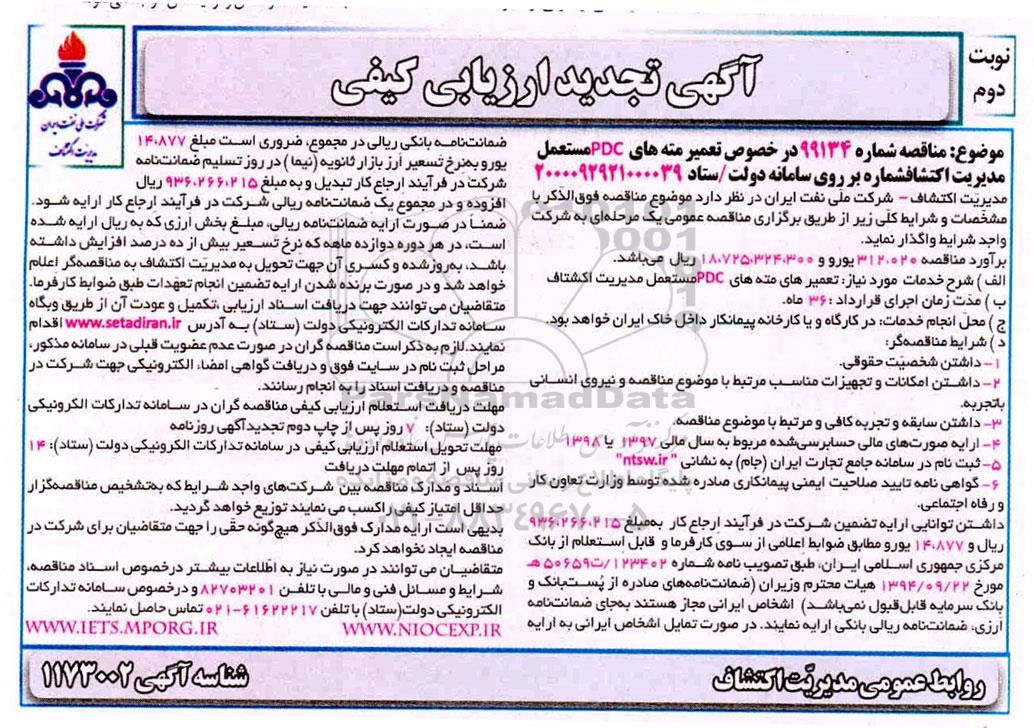 نوبت
دوم
آگهی تجدید ارزیابی کیفی
شرکت ملی نفت ایران
مدیریت اکتشاف
موضوع: مناقصه شماره ۹۹۱۳۴ در خصوص تعمیر مته های PDCمستعمل
مدیریت اکتشافشماره بر روی سامانه دولت /ستاد ۲۰۰۰۰۹۲۹۲۱۰۰۰۰۳۹
مدیریّت اکتشاف – شرکت ملی نفت ایران در نظر دارد موضوع مناقصه فوق‌الذّکر با
مشخّصات و شرایط کلّی زیر از طریق برگزاری مناقصه عمومی یک مرحله‌ای به شرکت
واجد شرایط واگذار نماید.
برآورد مناقصه ۳۱۲.۰۲۰ یورو و ۱۸.۷۲۵.۳۲۴.۳۰۰ ریال می‌باشد.
الف ) شرح خدمات مورد نیاز: تعمیر های مته های PDCمستعمل مدیریت اکتشاف
ب ) مدّت زمان اجرای قرارداد : ۳۶ ماه.
ج ) محلّ انجام خدمات: در کارگاه و یا کارخانه پیمانکار داخل خاک ایران خواهد بود.
د ) شرایط مناقصه‌گر:
۱– داشتن شخصیّت حقوقی.
۲– داشتن امکانات و تجهیزات مناسب مرتبط با موضوع مناقصه و نیروی انسانی
باتجربه.
۳– داشتن سابقه و تجربه کافی و مرتبط با موضوع مناقصه.
۴– ارایه صورت‌های مالی حسابرسی‌شده مربوط به سال مالی ۱۳۹۷ یا ۱۳۹۸
۵– ثبت نام در سامانه جامع تجارت ایران (جام) به نشانی " ntsw.ir"
۶– گواهی نامه تایید صلاحیت ایمنی پیمانکاری صادره شده توسط وزارت تعاون کار
و رفاه اجتماعی.
داشتن توانایی ارایه تضمین شرکت در فرآیند ارجاع کار به‌مبلغ ۹۳۶.۲۶۶.۲۱۵
ریال و ۱۴.۸۷۷ یورو مطابق ضوابط اعلامی از سوی کارفرما و قابل استعلام از بانک
مرکزی جمهوری اسلامی ایران، طبق تصویب نامه شماره ۱۲۳۴۰۲/ت۵۰۶۵۹ هـ
مورخ ۱۳۹۴/۰۹/۲۲ هیات محترم وزیران (ضمانت‌نامه‌های صادره از پُست‌بانک و
بانک سرمایه قابل‌قبول نمی‌باشد) اشخاص ایرانی مجاز هستند به‌جای ضمانت‌نامه
ارزی، ضمانت‌نامه ریالی بانکی ارایه نمایند. در صورت تمایل اشخاص ایرانی به ارایه
ضمانت‌نامه بانکی ریالی در مجموع، ضروری است مبلغ ۱۴.۸۷۷
یورو به‌نرخ تسعیر ارز بازار ثانویه (نیما) در روز تسلیم ضمانت‌نامه
شرکت در فرآیند ارجاع کار تبدیل و به مبلغ ۹۳۶.۲۶۶.۲۱۵ ریال
افزوده و در مجموع یک ضمانت‌نامه ریالی شرکت در فرآیند ارجاع کار ارایه شود.
ضمناً در صورت ارایه ضمانت‌نامه ریالی، مبلغ بخش ارزی که به ریال ارایه شده
است، در هر دوره دوازده ماهه که نرخ تسعیر بیش از ده درصد افزایش داشته
باشد، به‌روز شده و کسری آن جهت تحویل به مدیریّت اکتشاف به مناقصه‌گر اعلام
خواهد شد و در صورت برنده شدن ارایه تضمین انجام تعهّدات طبق ضوابط کارفرما.
متقاضیان می توانند جهت دریافت اسناد ارزیابی ،تکمیل و عودت آن از طریق وبگاه
سامانه تدارکات الکترونیکی دولت (ستاد) به آدرس www.setadiran.ir اقدام
نمایند. لازم به ذکر است مناقصه گران در صورت عدم عضویت قبلی در سامانه مذکور،
مراحل ثبت نام در سایت فوق و دریافت گواهی امضاء الکترونیکی جهت شرکت در
مناقصه و دریافت اسناد را به انجام رسانند.
مهلت دریافت استعلام ارزیابی کیفی مناقصه گران در سامانه تدارکات الکترونیکی
دولت (ستاد): ۷ روز پس از چاپ دوم تجدیدآگهی روزنامه
مهلت تحویل استعلام ارزیابی کیفی در سامانه تدارکات الکترونیکی دولت (ستاد): ۱۴
روز پس از اتمام مهلت دریافت
اسناد و مدارک مناقصه بین شرکت‌های واجد شرایط که به‌تشخیص مناقصه‌گزار
حداقل امتیاز کیفی را کسب می نمایند توزیع خواهد گردید.
بدیهی است ارایه مدارک فوق‌الذّکر هیچ‌گونه حقّی را جهت متقاضیان برای شرکت در
مناقصه ایجاد نخواهد کرد.
متقاضیان می توانند در صورت نیاز به اطّلاعات بیشتر درخصوص اسناد مناقصه،
شرایط و مسائل فنی و مالی با تلفن ۸۲۷۰۳۲۰۱ و درخصوص سامانه تدارکات
الکترونیکی دولت(ستاد) با تلفن ۶۱۶۲۲۲۱۷-۰۲۱ تماس حاصل نمایند.
WWW.IETS.MPORG.IR WWW.NIOCEXP.IR
روابط عمومی مدیریّت اکتشاف
شناسه آگهی ۱۱۷۳۰۰۲
ParsNamadData
۰۲۱-۸۸۳۴۹۶۷۰-۵